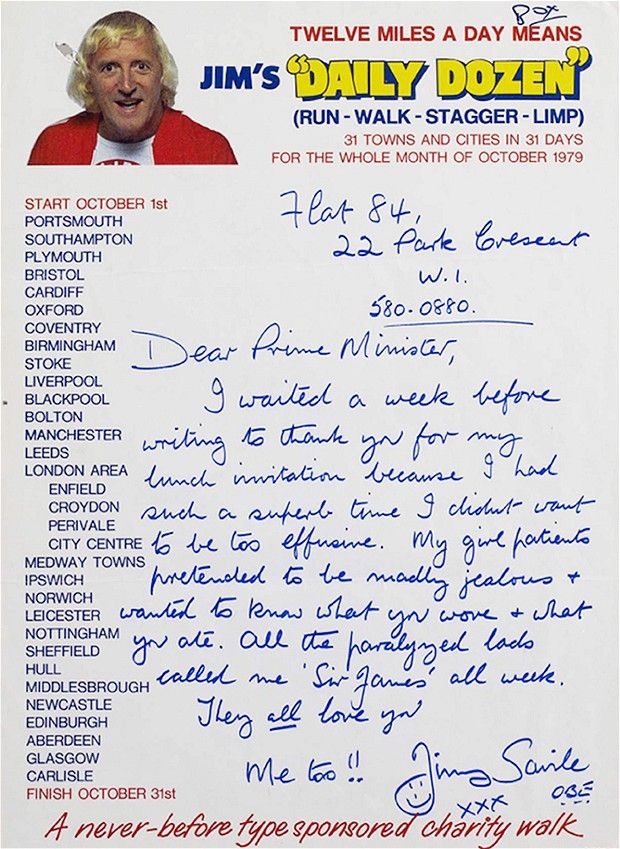 TWELVE MILES A DAY MEANS
JIM'S "DAILY DOZEN"
(RUN - WALK - STAGGER - LIMP)
31 TOWNS AND CITIES IN 31 DAYS
FOR THE WHOLE MONTH OF OCTOBER 1979
START OCTOBER 1st
PORTSMOUTH
SOUTHAMPTON
PLYMOUTH
BRISTOL
CARDIFF
OXFORD
COVENTRY
BIRMINGHAM
STOKE
LIVERPOOL
BLACKPOOL
BOLTON
MANCHESTER
LEEDS
LONDON AREA
ENFIELD
CROYDON
PERIVALE
CITY CENTRE
MEDWAY TOWNS
IPSWICH
NORWICH
LEICESTER
NOTTINGHAM
SHEFFIELD
HULL
MIDDLESBROUGH
NEWCASTLE
EDINBURGH
ABERDEEN
GLASGOW
CARLISLE
FINISH OCTOBER 31st
Flat 84,
22 Park Crescent
W.1.
580-0880.
Dear Prime Minister,
I waited a week before
writing to thank you for my
lunch invitation because I had
such a superb time I didnt want
to be too effusive. My girl patients
pretended to be madly jealous +
wanted to know what you wore + what
you ate. All the paralyzed lads
called me 'Sir James' all week.
They all love you
Me too!! Jimmy Savile
xxx OBE
A never-before type sponsored charity walk